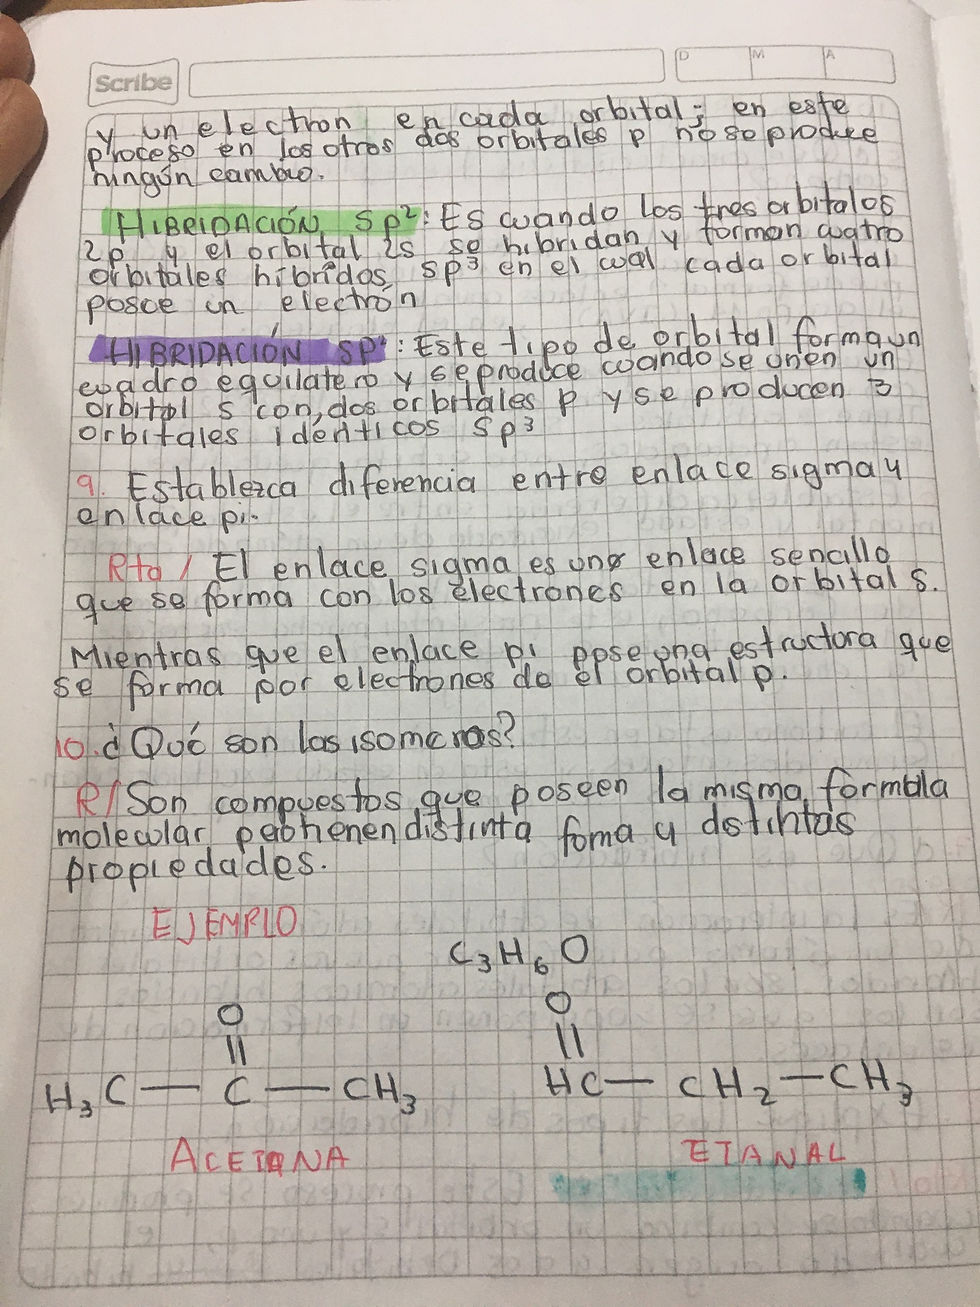 Scribe
D M A
y un electron en cada orbital; en este
proceso en los otros dos orbitales p no se produce
ningún cambio.
HIBRIDACIÓN sp²: Es cuando los tres orbitalos
2p y el orbital 2s se hibridan y forman cuatro
orbitales hibridos sp³ en el cual cada orbital
posee un electrón
HIBRIDACIÓN sp²: Este tipo de orbital forma un
cuadro equilatero y se produce cuando se unen un
orbital s con, dos orbitales p y se producen 3
orbitales idénticos sp³
9. Establezca diferencia entre enlace sigma y
enlace pi.
Rta / El enlace sigma es uno enlace sencillo
que se forma con los electrones en la orbital s.
Mientras que el enlace pi una estructura que
se forma por electrones de el orbital p.
10. ¿Qué son los isomeros?
R/ Son compuestos que poseen la misma formula
molecular distinta foma y distintas
propiedades.
EJEMPLO
C₃H₆O
O O
|| ||
H₃C — C — CH₃ HC — CH₂ — CH₃
ACETONA ETANAL